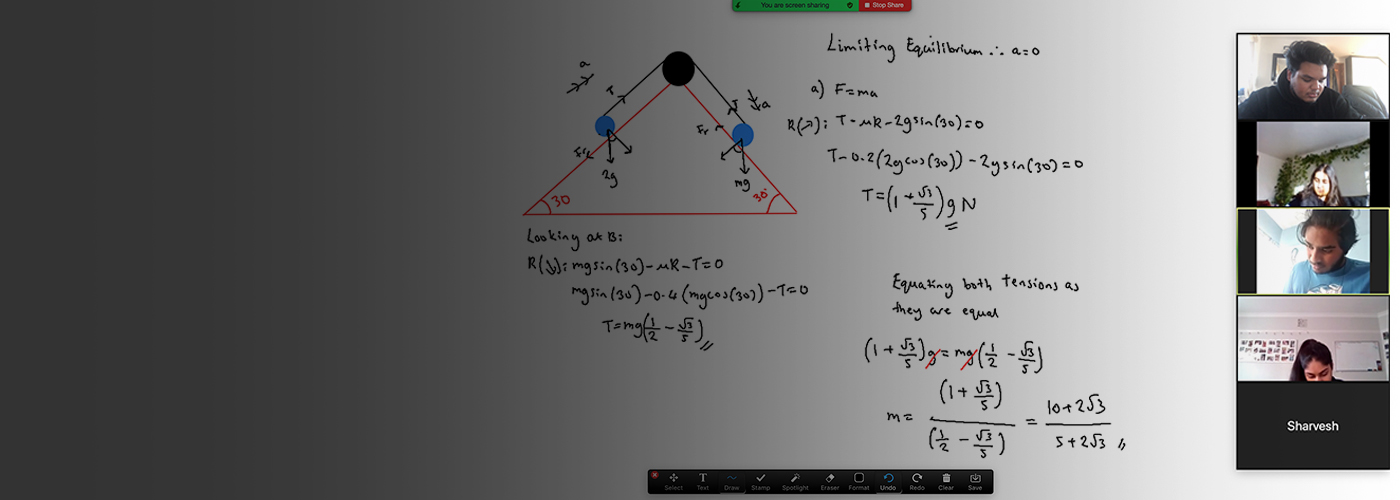 You are screen sharing
Stop Share
Limiting Equilibrium ∴ a=0
a
T
T
a
Fr
Fr
2g
mg
30
30°
a) F=ma
R(↗): T-μR-2gsin(30)=0
T-0.2(2gcos(30))-2gsin(30)=0
T=(1+√3/5)g N
Looking at B:
R(↘): mgsin(30)-μR-T=0
mgsin(30)-0.4(mgcos(30))-T=0
T=mg(1/2-√3/5)
Equating both tensions as
they are equal
(1+√3/5)g=mg(1/2-√3/5)
m=(1+√3/5)/(1/2-√3/5)=(10+2√3)/(5+2√3)
Sharvesh
Select Text Draw Stamp Spotlight Eraser Format Undo Redo Clear Save